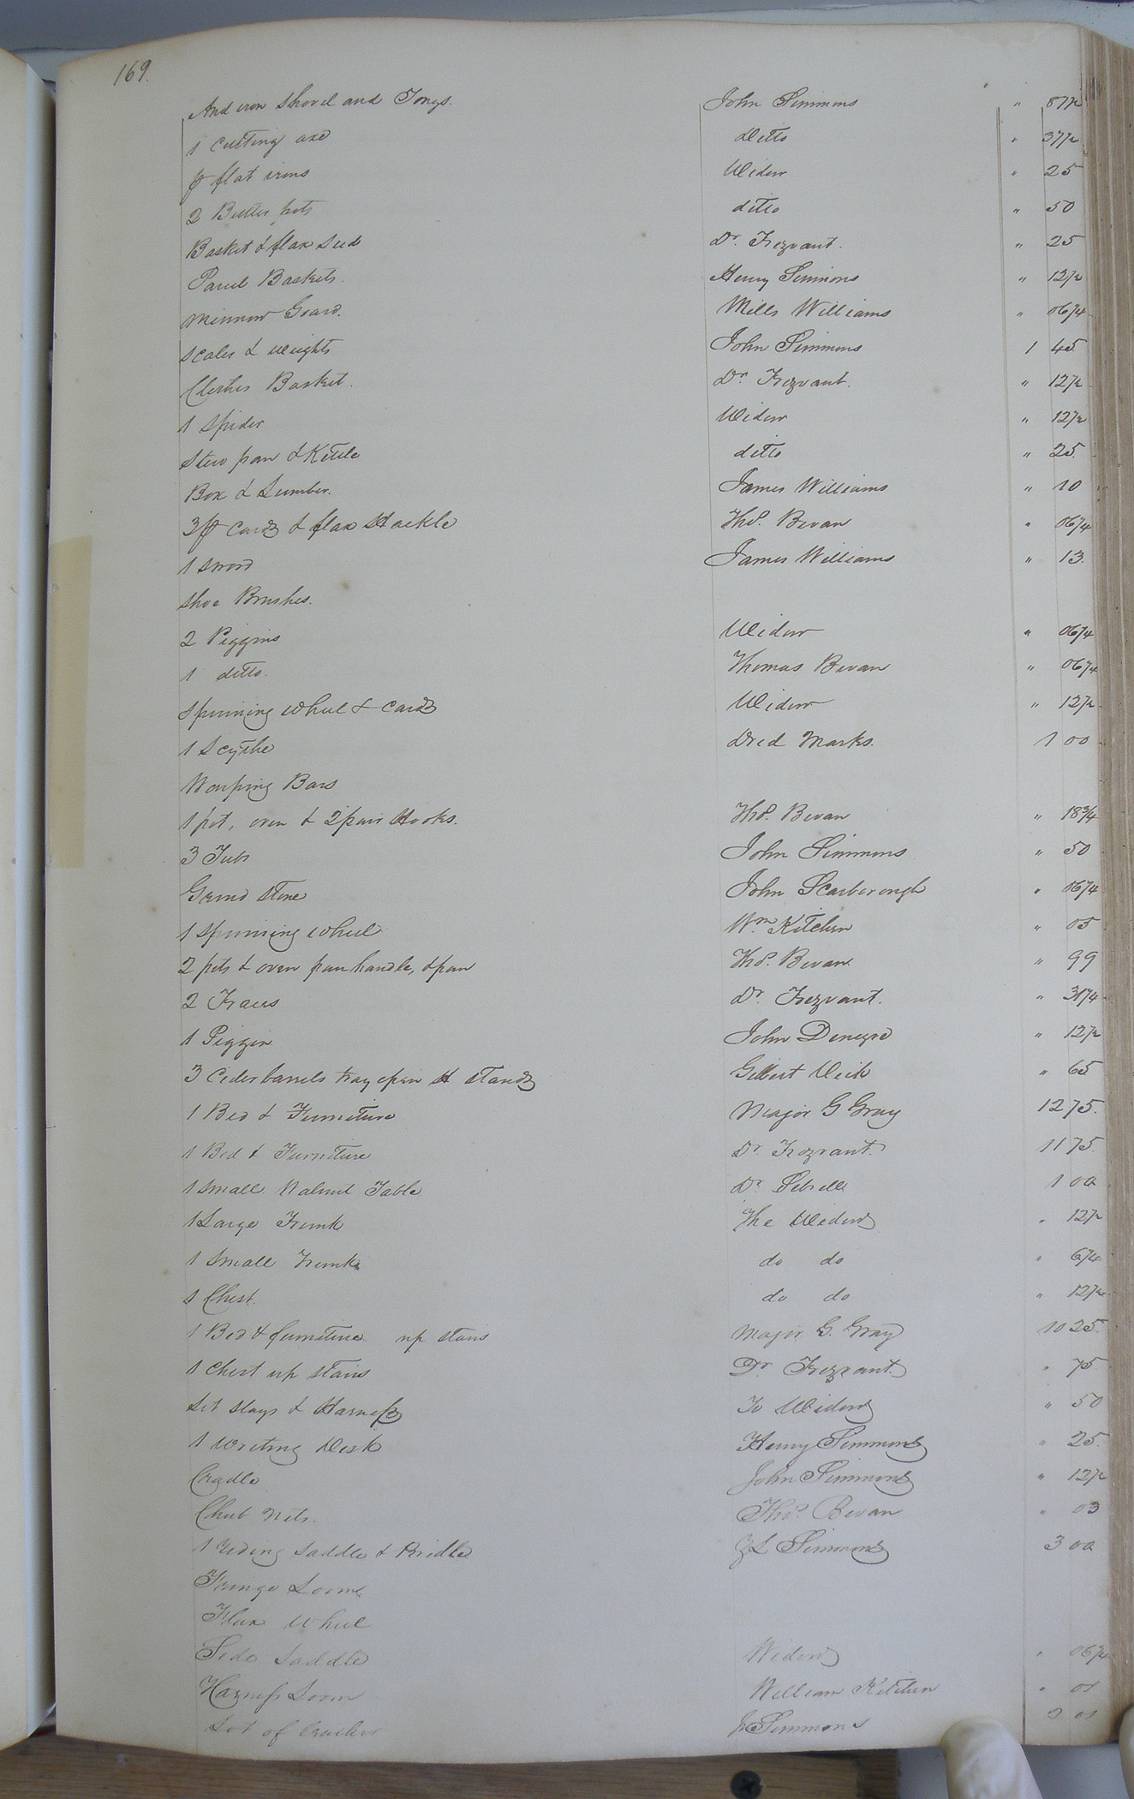 169.
And iron Shovel and Tongs. John Simmons " 87½
1 Cutting axe Ditto " 37½
pr flat irons Widow " 25
2 Butter pots ditto " 50
Basket & flax seed Dr. Trezvant. " 25
Parcel Baskets. Henry Simmons " 12½
Minnow Mills Williams " 06¼
Scales & Weights John Simmons 1 45
Clothes Basket. Dr. Trezvant. " 12½
1 Spider Widow " 12½
Stew pan & Kettle ditto " 25
Box & Lumber. James Williams " 10
3 pr Cards & flax Hackle Thos. Bevan " 06¼
1 Sword James Williams " 13.
Shoe Brushes.
2 Piggins Widow " 06¼
1 ditto. Thomas Bevan " 06¼
Spinning wheel & Cards Widow " 12½
1 Scythe Dred Marks. 1 00
Warping Bars
1 pot, oven & 2 pair Hooks. Thos. Bevan " 18¾
3 Tubs John Simmons " 50
Grind Stone John Scarborough " 06¼
1 Spinning wheel Wm Kitchen " 05
2 pots & oven pan handle, & pan Thos. Bevan " 99
2 Trays Dr. Trezvant. " 31¼
1 Piggin John Denegre " 12½
3 Ceder barrels tray & Stands Gilbert " 65
1 Bed & Furniture Major G Gray 12 75.
1 Bed & Furniture Dr Trezvant. 11 75.
1 Small Walnut Table Dr 1 00
1 Large Trunk The Widow " 12½
1 Small Trunk do do " 6¼
1 Chest. do do " 12½
1 Bed & furniture up stairs Major G. Gray 10 25.
1 Chest up stairs Dr Trezvant. " 75
Set Slays & Harness To Widow " 50
1 Writing Desk Henry Simmons " 25.
Cradle John Simmons " 12½
Chub Nets. Thos. Bevan " 03
1 riding Saddle & Bridle Simmons 3 00
Fringe Loom
Flax Wheel
Side Saddle Widow " 06¼
Harness Loom William Kitchen "
Lot of Simmons